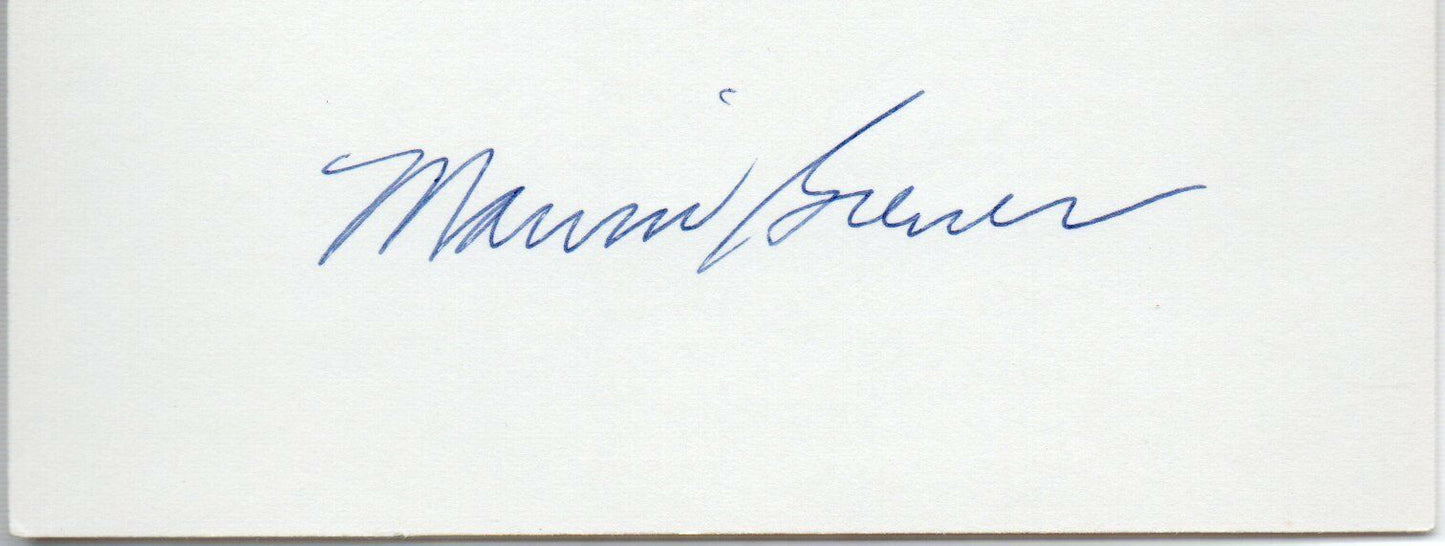 Marvin Breuer